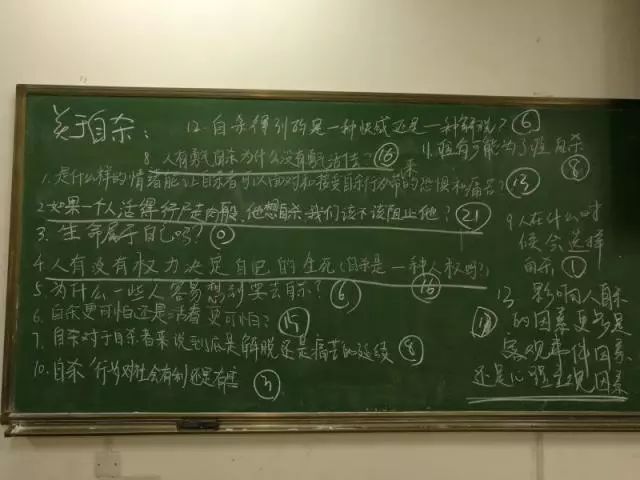 关于自杀：
12. 自杀得到的是一种快感还是一种解脱？ ⑥
8. 人有勇气自杀为什么没有勇气活下去？ ⑯
11. 有可能为了 自杀 ⑧
1. 是什么样的情绪能让自杀者可以面对和接受自杀行为带来的恐惧和痛苦？ ⑬
2. 如果一个人活得行尸走肉般，他想自杀，我们该不该阻止他？ ㉑
3. 生命属于自己吗？ ⓪
9. 人在什么时
候会选择
自杀 ①
4. 人有没有权力决定自己的生死（自杀是一种人权吗？） ⑯
5. 为什么一些人容易想到要去自杀？ ⑥
6. 自杀更可怕还是活着更可怕？ ⑮
7. 自杀对于自杀者来说到底是解脱还是痛苦的延续 ⑧
10. 自杀行为对社会有利还是有害 ③
13 影响人自杀
的因素更多是
客观事件因素
还是心理主观因素